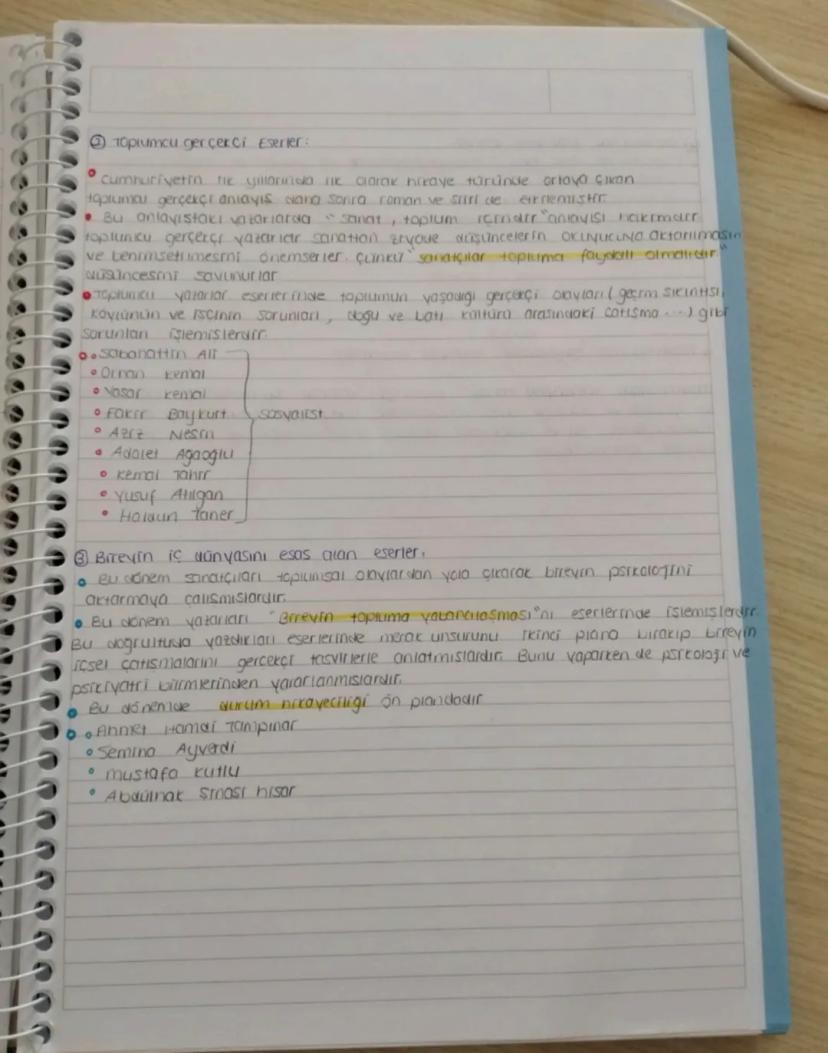 ② Toplumcu gerçekçi Eserler:
• Cumhuriyetin ilk yıllarında ilk olarak hikaye türünde ortaya çıkan
toplumcu gerçekçi anlayış daha sonra roman ve şiiri de etkilemiştir.
• Bu anlayıştaki yazarlarda "sanat, toplum içindir" anlayışı hakimdir.
toplumcu gerçekçi yazarlar sanattan ziyade düşüncelerin okuyucuya aktarılması
ve benimsetilmesini önemserler. Çünkü "sanatçılar topluma faydalı olmalıdır."
düşüncesini savunurlar
• Toplumcu yazarlar eserlerinde toplumun yaşadığı gerçekçi olayları (geçim sıkıntısı,
köylünün ve işçinin sorunları, doğu ve batı kültürü arasındaki çatışma ...) gibi
sorunları işlemişlerdir.
• Sabahattin Ali
• Orhan Kemal
• Yaşar Kemal
• Fakir Baykurt } sosyalist
• Aziz Nesin
• Adalet Ağaoğlu
• Kemal Tahir
• Yusuf Atılgan
• Haldun Taner
③ Bireyin iç dünyasını esas alan eserler.
• Bu dönem sanatçıları toplumsal olaylardan yola çıkarak bireyin psikolojini
aktarmaya çalışmışlardır.
• Bu dönem yazarları "Bireyin topluma yabancılaşması"nı eserlerinde işlemişlerdir.
Bu doğrultuda yazdıkları eserlerinde merak unsurunu ikinci plana bırakıp bireyin
içsel çatışmalarını gerçekçi tasvirlerle anlatmışlardır. Bunu yaparken de psikoloji ve
psikiyatri bilimlerinden yararlanmışlardır.
• Bu dönemde durum hikayeciliği ön plandadır
• Ahmet Hamdi Tanpınar
• Semiha Ayverdi
• Mustafa Kutlu
• Abdülhak Şinasi hisar